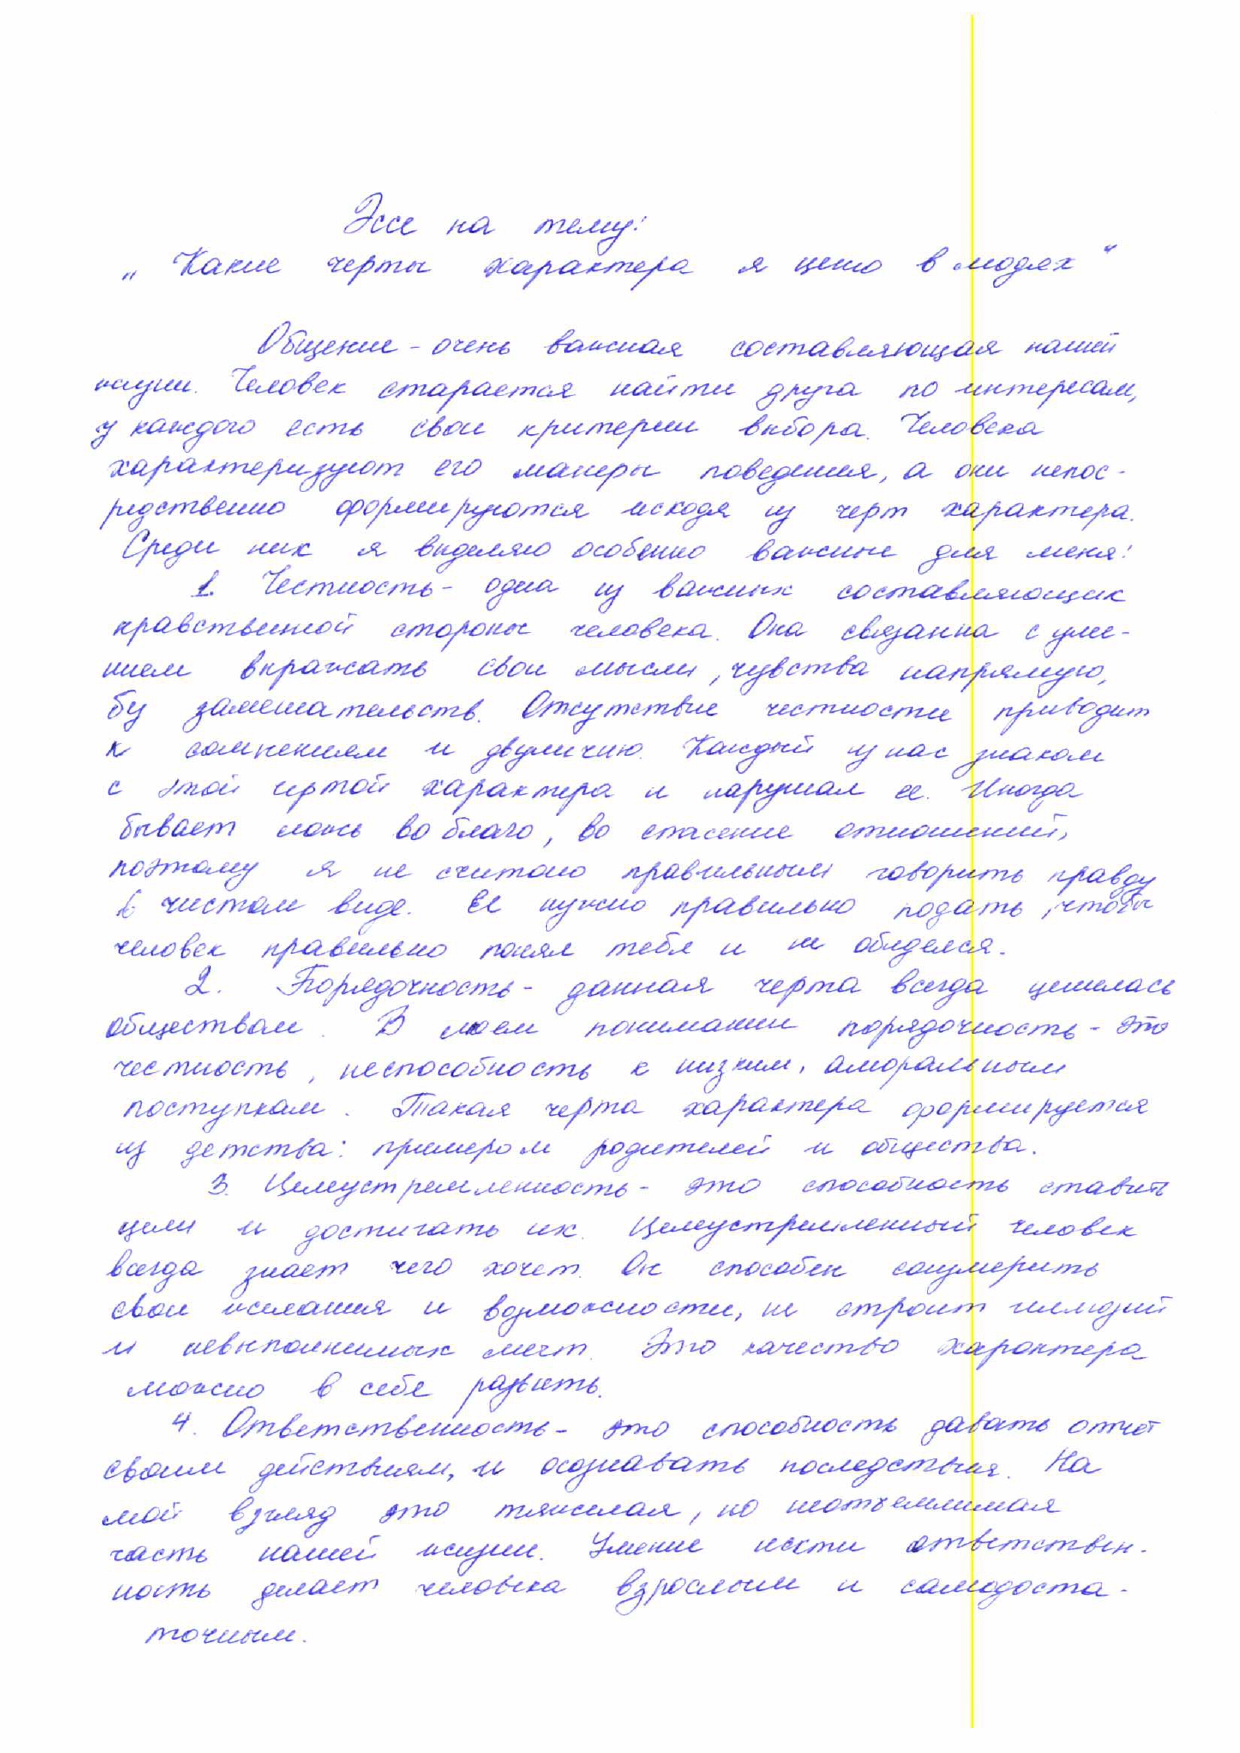 Эссе на тему:
„Какие черты характера я ценю в людях“
Общение - очень важная составляющая нашей
жизни. Человек старается найти друга по интересам,
у каждого есть свои критерии выбора. Человека
характеризуют его манеры поведения, а они непос-
редственно формируются исходя из черт характера.
Среди них я выделяю особенно важные для меня:
1. Честность - одна из важных составляющих
нравственной стороны человека. Она связанна с уме-
нием выражать свои мысли, чувства напрямую,
без замешательств. Отсутствие честности приводит
к сомнениям и двуличию. Каждый из нас знаком
с этой чертой характера и нарушал ее. Иногда
бывает ложь во благо, во спасение отношений,
поэтому я не считаю правильным говорить правду
в чистом виде. Её нужно правильно подать, чтобы
человек правильно понял тебя и не обиделся.
2. Порядочность - данная черта всегда ценилась
обществом. В моем понимании порядочность - это
честность, неспособность к низким, аморальным
поступкам. Такая черта характера формируется
из детства: примером родителей и общества.
3. Целеустремленность - это способность ставить
цели и достигать их. Целеустремленный человек
всегда знает чего хочет. Он способен соизмерить
свои желания и возможности, не строит иллюзий
и невыполнимых мечт. Это качество характера
можно в себе развить.
4. Ответственность - это способность давать отчет
своим действиям, и осознавать последствия. На
мой взгляд это тяжелая, но неотъемлимая
часть нашей жизни. Умение нести ответствен-
ность делает человека взрослым и самодоста-
точным.